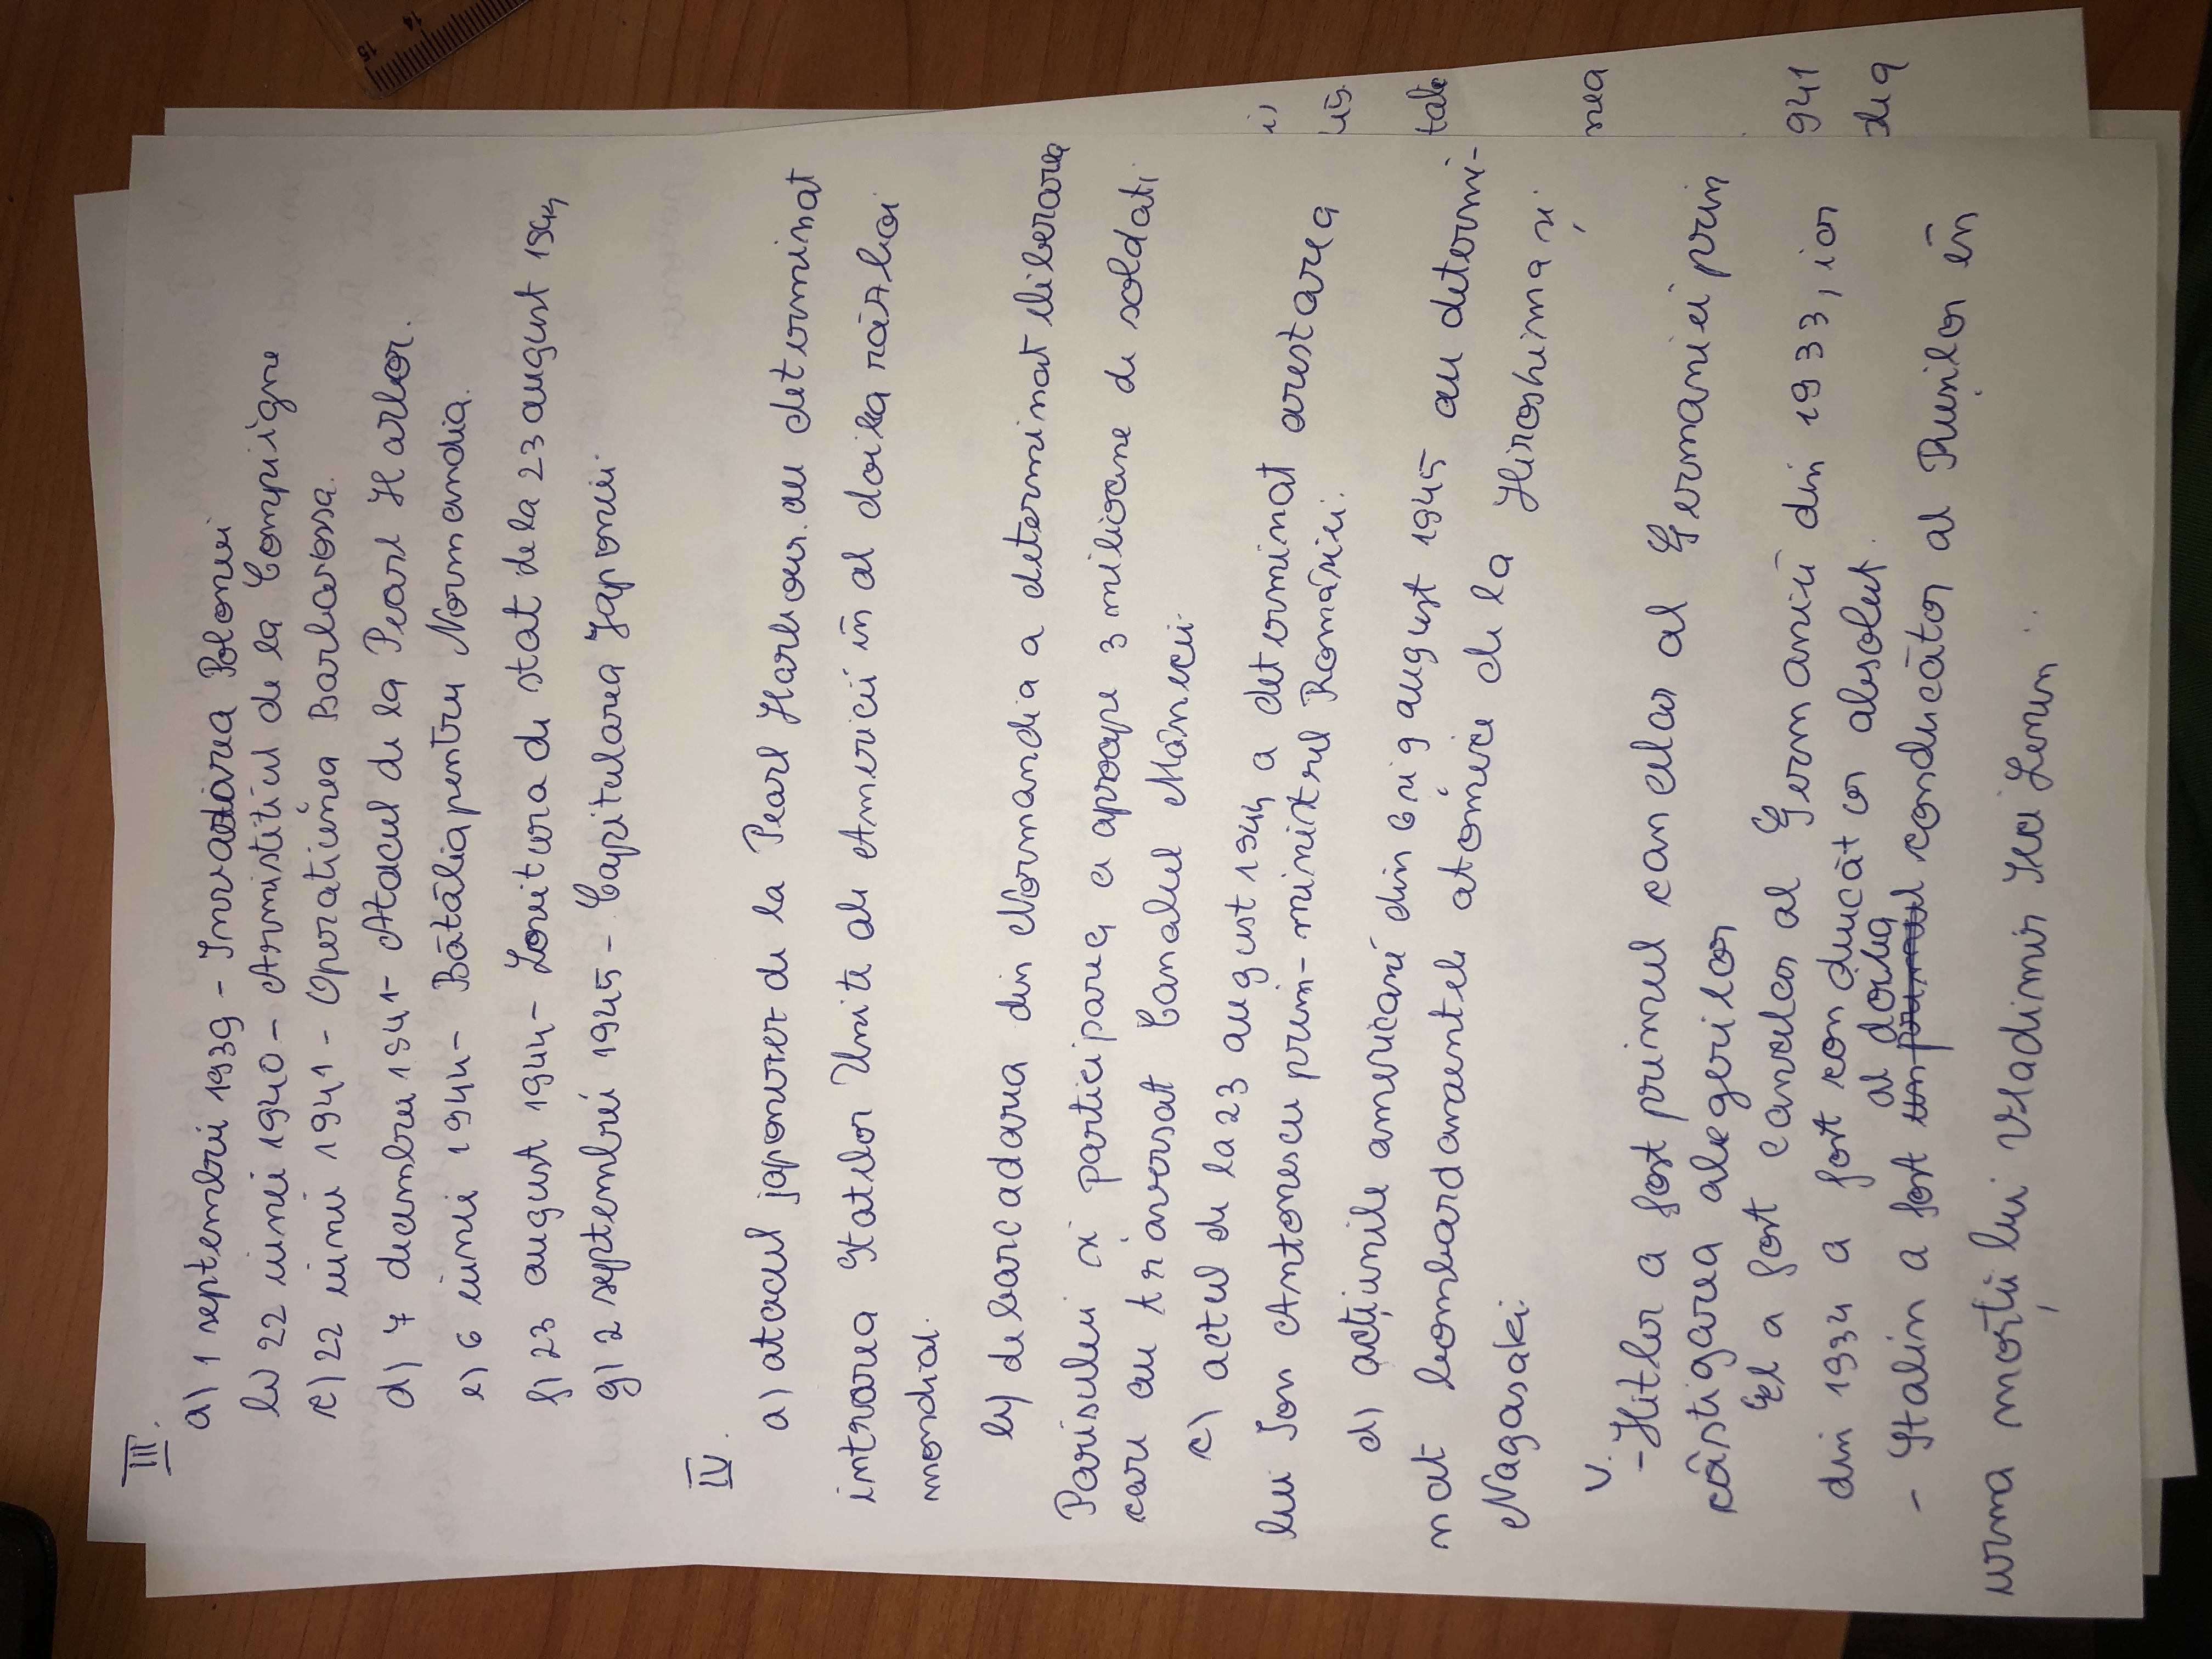 III.
a) 1 septembrie 1939 - Invadarea Poloniei
b) 22 iunie 1940 - Armistitiul de la Compiegne
c) 22 iunie 1941 - Operatiunea Barbarossa.
d) 7 decembrie 1941 - Atacul de la Pearl Harbor.
e) 6 iunie 1944 - Bătălia pentru Normandia.
f) 23 august 1944 - Lovitura de stat de la 23 august 1944
g) 2 septembrie 1945 - Capitularea Japoniei.
IV.
a) atacul japonez de la Pearl Harbour. au determinat
intrarea Statelor Unite ale Americii în al doilea război
mondial.
b) debarcadarea din Normandia a determinat eliberarea
Parisului si participarea a aproape 3 milioane de soldati
care au traversat Canalul Mânecii.
c) actul de la 23 august 1944 a determinat arestarea
lui Ion Antonescu prim-ministrul României.
d) acțiunile americane din 6 si 9 august 1945 au determi-
nat bombardamentele atomice de la Hiroshima și
Nagasaki.
V.
- Hitler a fost primul cancelar al Germaniei prin
câstigarea alegerilor
El a fost cancelar al Germaniei din 1933, iar
din 1934 a fost conducător absolut.
al doilea
- Stalin a fost conducător al Rușilor în
urma morții lui Vladimir Ilici Lenin.
15 14
i)
tate
nea
941
dea